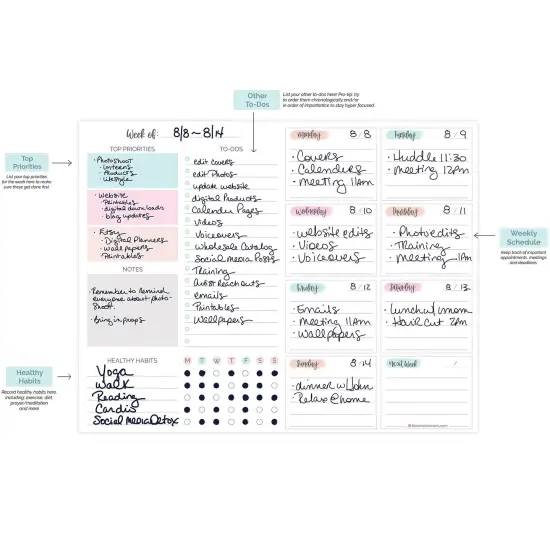 Other
To-Dos
List your other to-dos here! Pro tip: try
to order them chronologically and/or
in order of importance to stay hyper focused.
Week of: 8/8 ~ 8/14
TOP PRIORITIES
Top
Priorities
List your top priorities
for the week here to make
sure these get done first.
• Photoshoot
- Interns
- Products
- Lifestyle
• Website
- Printables
- digital downloads
- blog updates
• Etsy
- Digital Planners
- Wallpapers
- Printables
NOTES
• Remember to remind
everyone about photo-
shoot.
• Bring in props
TO-DOS
edit covers
edit Photos
update website
digital Products
Calendar Pages
Videos
Voiceovers
Wholesale Catalog
Social media Posts
Training
Artist Reach outs
emails
Printables
Wallpapers
Healthy
Habits
Record healthy habits here,
including: exercise, diet,
prayer/meditation
and more!
HEALTHY HABITS M T W T F S S
Yoga
Walk
Reading
Cardio
Social Media Detox
Monday 8/8
• Covers
• Calendars
• Meeting 11am
Tuesday 8/9
• Huddle 11:30
• Meeting 12pm
Wednesday 8/10
• website edits
• Videos
• Voiceovers
Thursday 8/11
• Photo edits
• Training
• Meeting 1pm
Weekly
Schedule
Keep track of important
appointments, meetings
and deadlines.
Friday 8/12
• Emails
• Meeting 11am
• Wallpapers
Saturday 8/13
• Lunch w/ mom
• Hair Cut 2pm
Sunday 8/14
• dinner w/ John
• Relax @ home
Next Week /